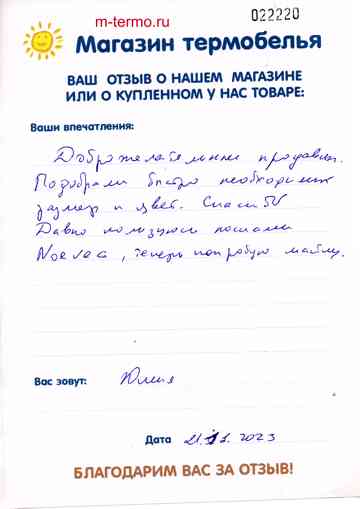 m-termo.ru
022220
Магазин термобелья
ВАШ ОТЗЫВ О НАШЕМ МАГАЗИНЕ
ИЛИ О КУПЛЕННОМ У НАС ТОВАРЕ:
Ваши впечатления:
Доброжелательный продавец.
Подобрали быстро необходимый
размер и цвет. Спасибо
Давно пользуюсь носками
Norveg, теперь попробую майку.
Вас зовут: Юлия
Дата 21.11.2023
БЛАГОДАРИМ ВАС ЗА ОТЗЫВ!